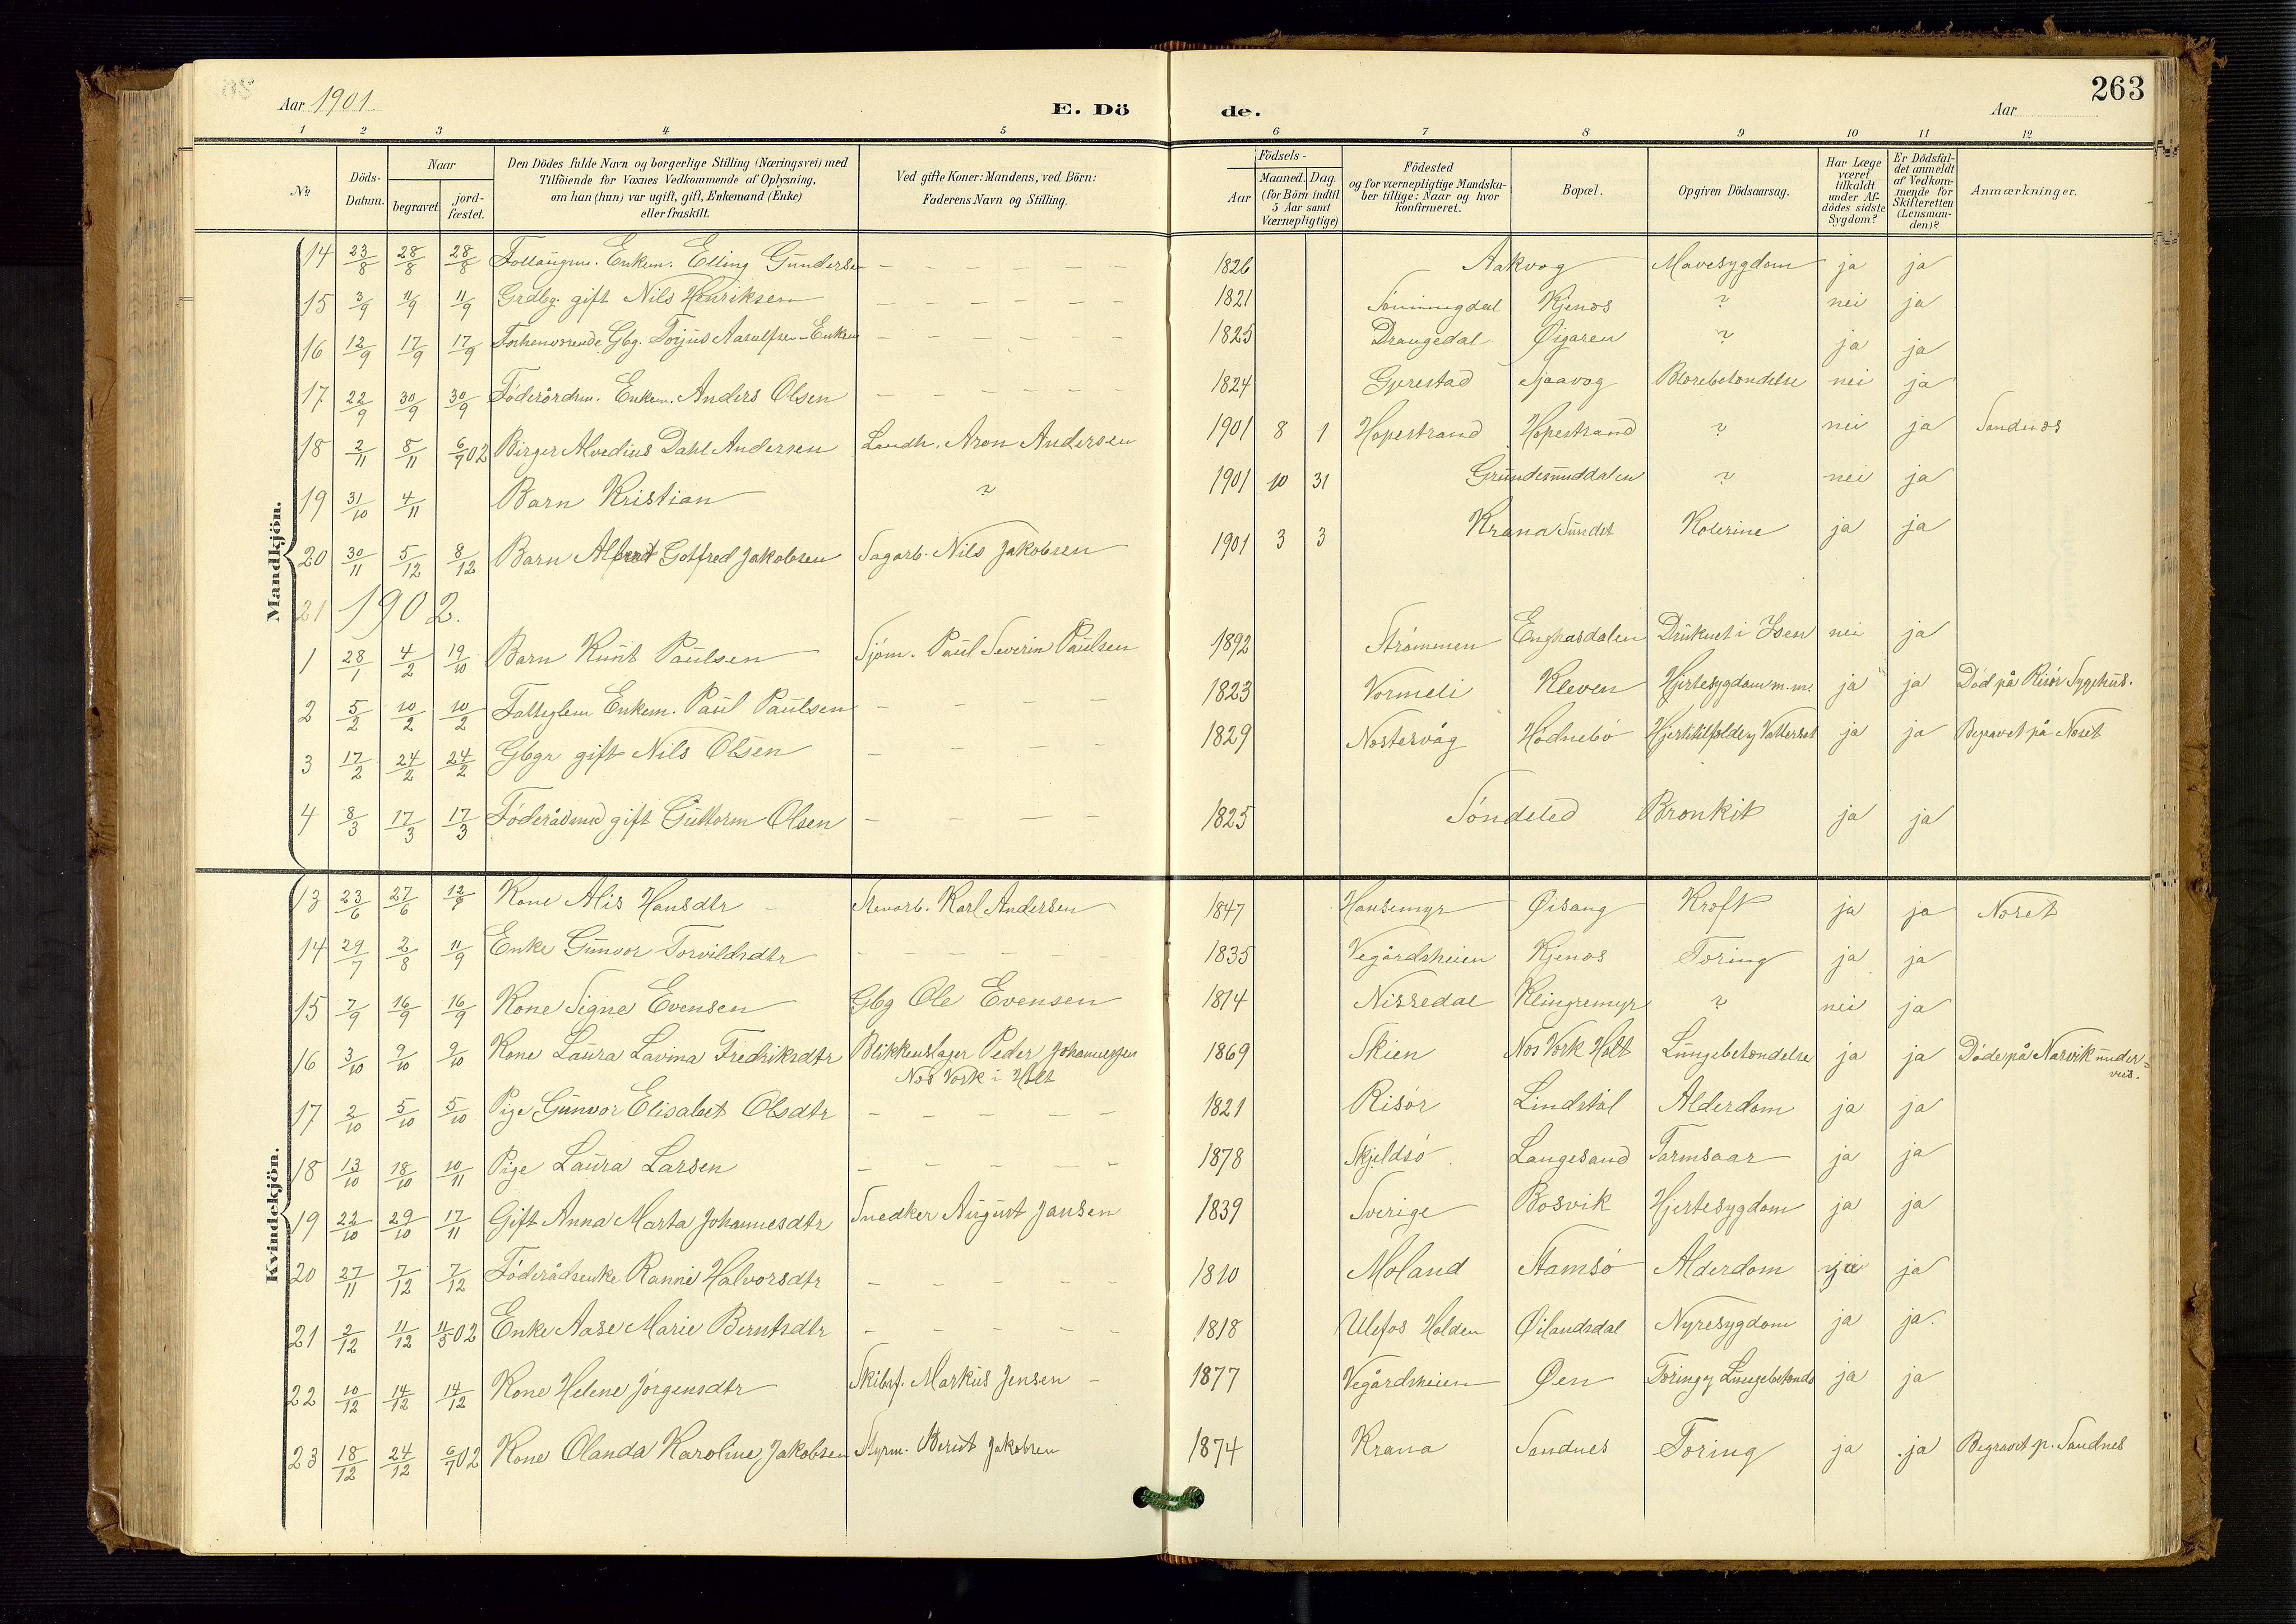 263
Aar 1901.
E. Dö
de.
Aar
1 2 3 4 5 6 7 8 9 10 11 12
№
Döds-Datum.
Naar
begravet
jord-fæstet.
Den Dödes fulde Navn og borgerlige Stilling (Næringsvei) med
Tilföiende for Voxnes Vedkommende af Oplysning,
om han (hun) var ugift, gift, Enkemand (Enke)
eller fraskilt.
Ved gifte Koner: Mandens, ved Börn:
Faderens Navn og Stilling.
Födsels-
Aar
Maaned. Dag.
(for Börn indtil
5 Aar samt
Værnepligtige)
Födested
og for værnepligtige Mandska-
ber tillige: Naar og hvor
konfirmeret.
Bopæl.
Opgiven Dödsaarsag.
Har Læge
været
tilkaldt
under Af-
dödes sidste
Sygdom?
Er Dödsfal-
det anmeldt
af Vedkom-
mende for
Skifteretten
(Lensman-
den)?
Anmærkninger.
Mandkjön.
14 23/8 28/8 28/8 Enkem. Elling Gundersen – – – – – – 1826 Aakvag Mavesygdom ja ja
15 3/9 11/9 11/9 Grdbg. gift Nils Henriksen – – – – – – 1821 Kjenes ? nei ja
16 12/9 17/9 17/9 Forhenværende Gbg. Torjus Aasulfsen – Enkem – – – – – – 1825 Drangedal Øigaren ? ja ja
17 22/9 30/9 30/9 Föderårdm. Enkem. Anders Olsen – – – – – 1824 Gjerestad Sjaavåg Blærebetændelse nei ja
18 2/11 8/11 6/7 02 Birger Alvedius Dahl Andersen Landh. Aron Andersen 1901 8 1 Hopestrand Hopestrand ? nei ja Sandnes
19 31/10 4/11 Barn Kristian ? 1901 10 31 Grundesunddalen ? nei ja
20 30/11 5/12 8/12 Barn Albert Gotfred Jakobsen Sagarb. Nils Jakobsen 1901 3 3 Krana Sundet Kolerine ja ja
21 1902.
1 28/1 4/2 19/10 Barn Knut Paulsen Sjöm. Paul Severin Paulsen 1892 Strömmen Enghasdalen Druknet i Isen nei ja
2 5/2 10/2 10/2 Fattiglem Enkem. Paul Paulsen – – – – 1823 Vormeli Kleven Hjertesygdom m.m. ja ja Död på Risör Sygehus.
3 17/2 24/2 24/2 Gbgr gift Nils Olsen – – – – 1829 Nostervåg Hödnebö Vattersot ja ja Begravet på Næset
4 8/3 17/3 17/3 Föderådsmd gift Guttorm Olsen – – – – 1825 Söndeled Bronkit ja ja
Kvindekjön.
13 23/6 27/6 12/7 Kone Alis Hansdtr – Stenarb. Karl Andersen 1847 Hansemyr Øisang Kræft ja ja Næset
14 29/7 2/8 11/9 Enke Gunvor Torvildsdtr – – – – – 1835 Vegårdsheien Kjenes Tæring ja ja
15 7/9 16/9 16/9 Kone Signe Evensen Gbg Ole Evensen 1814 Nissedal Klingremyr ? nei ja
16 3/10 9/10 9/10 Kone Laura Lavina Fredriksdtr Blikkenslager Peder Johannessen 1869 Skien Næs Værk Holt Lungebetændelse ja ja Döde på Narvik under-
Næs Værk i Holt veis.
17 2/10 5/10 5/10 Pige Gunvor Elisabet Olsdtr – – – – – 1821 Risör Lindstöl Alderdom ja ja
18 13/10 18/10 10/11 Pige Laura Larsen – – – – – 1878 Skjeldsö Langesand Tarmsaar ja ja
19 22/10 29/10 17/11 Gift Anna Marta Johannesdtr Snedker August Jansen 1839 Sverige Bosvik Hjertesygdom ja ja
20 27/11 7/12 7/12 Föderådsenke Ranni Halvorsdtr – – – – – 1810 Moland Stamsö Alderdom ja ja
21 2/12 11/12 11/5 02 Enke Aase Marie Berntsdtr – – – – – 1818 Ulefos Holden Øilandsdal Nyresygdom ja ja
22 10/12 14/12 14/12 Kone Helene Jörgensdtr Skibsf. Markus Jensen – 1877 Vegårdsheien Øen Tæring og Lungebetænd. ja ja
23 18/12 24/12 6/7 02 Kone Olanda Karoline Jakobsen Styrm. Bernt Jakobsen 1874 Krana Sandnes Tæring ja ja Begravet p. Sandnes